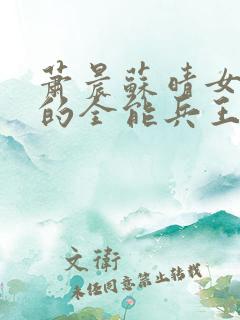 蕭晨蘇晴女
的全能兵王
文衛
未经同意禁止转载